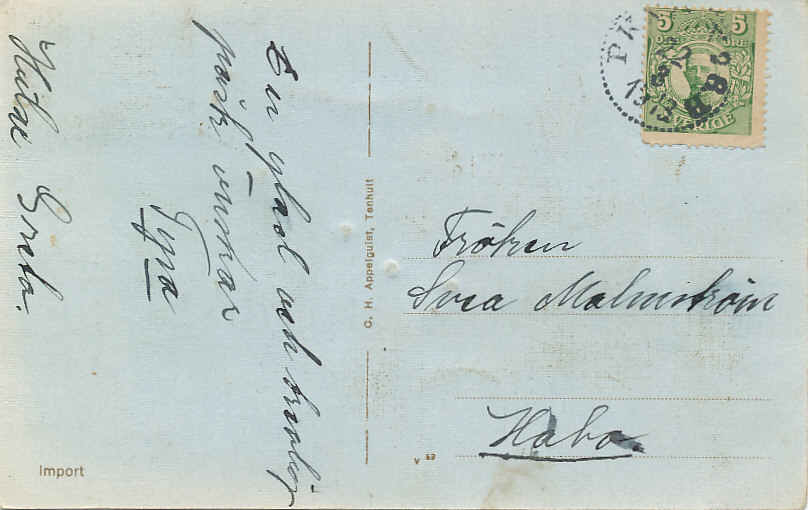 En glad och trevlig
påsk önskar
Tyra
Hälsa Greta.
C. H. Appelquist, Tenhult
5 5
ÖRE
SVERIGE
1913
Fröken
Svea Malmström
Habo.
Import